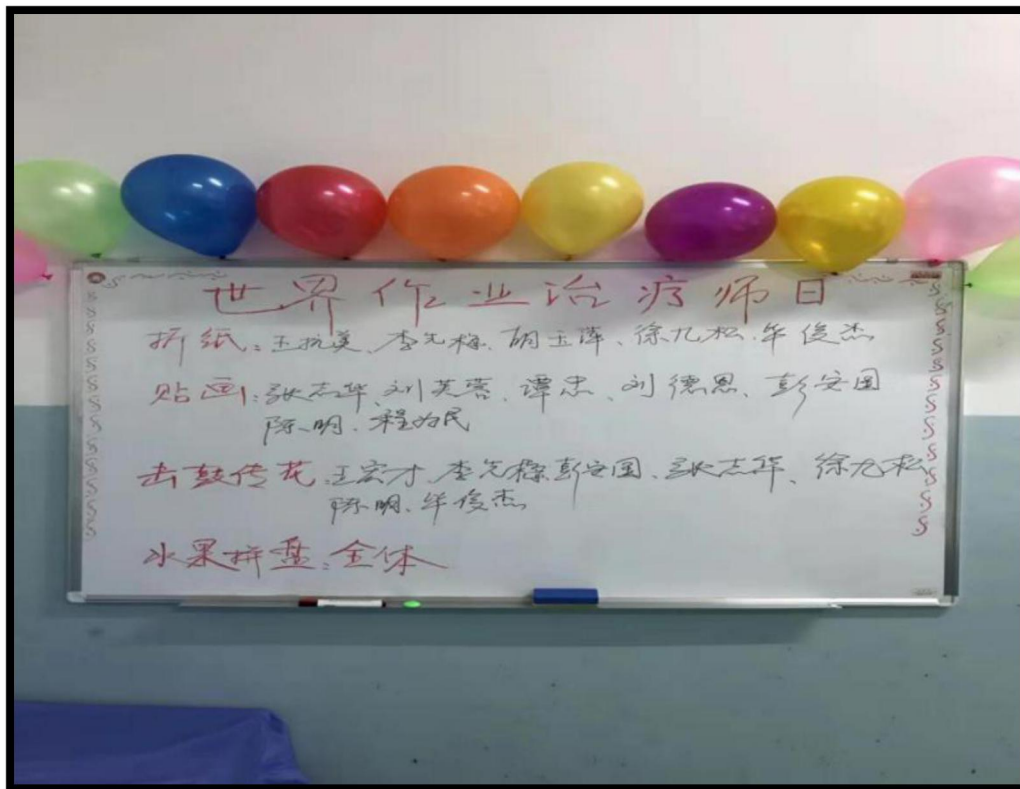 世界作业治疗师日
折纙:王抗美、李先梅、胡玉萍、徐九松、牟俊杰
贴画:张志华、刘芙蓉、谭忠、刘德恩、彭安国
陈明、程为民
击鼓传花:王宏才、李先梅、彭安国、张志华、徐九松
陈明、牟俊杰
水果拼盘:全体